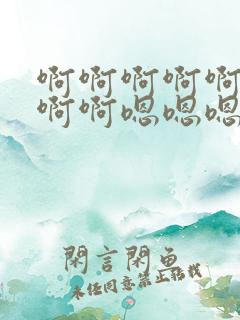 啊啊啊啊啊
啊啊嗯嗯嗯
閑言閑魚
未经同意禁止转载